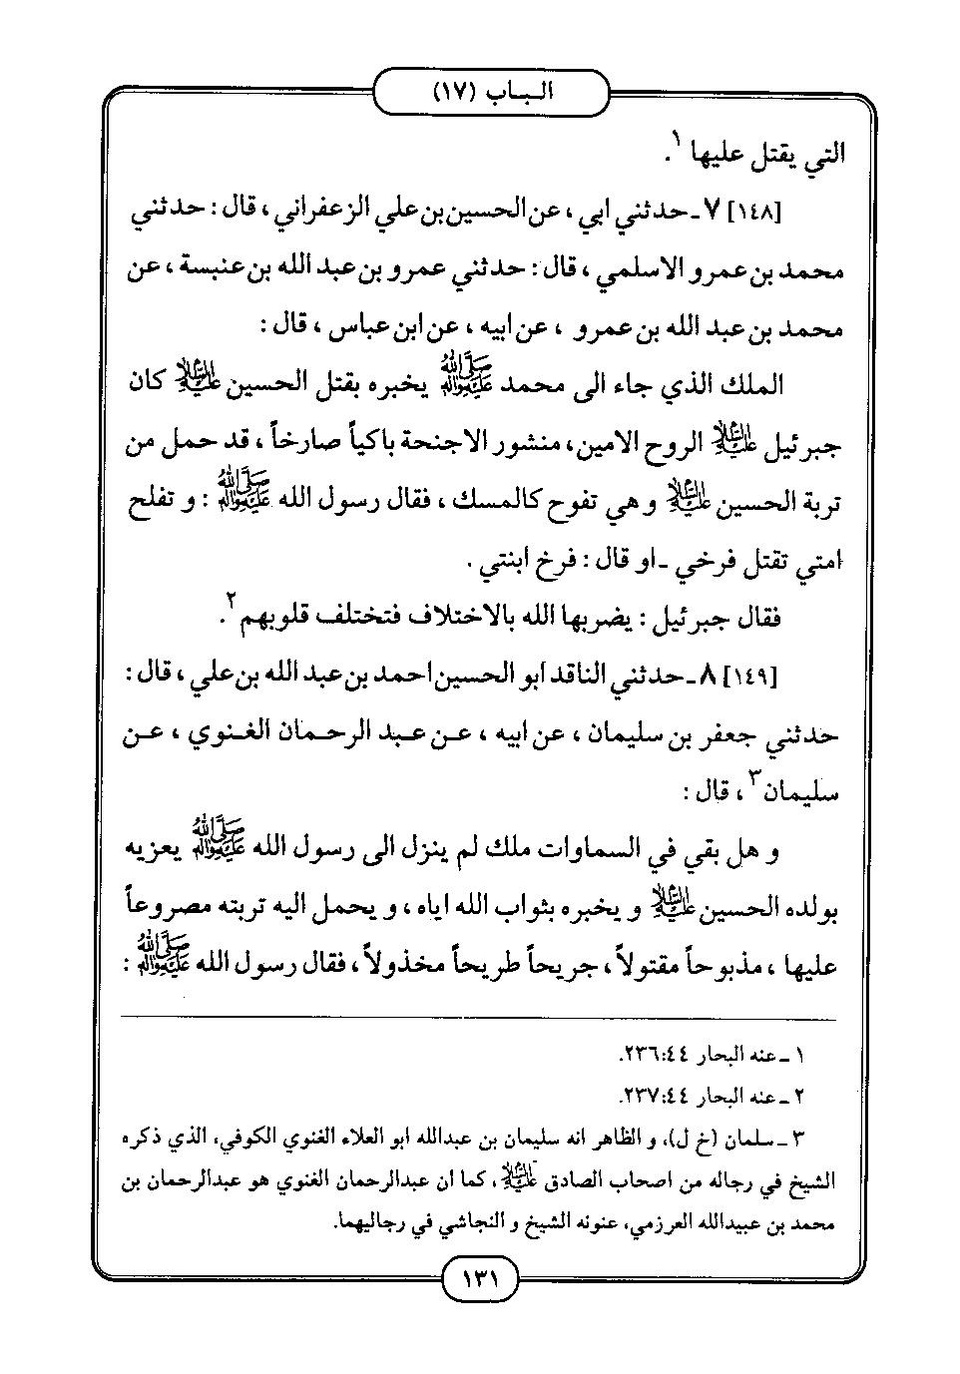 البـاب (١٧)
التي يقتل عليها ١.
[١٤٨] ٧ ـ حدثني ابي ، عن الحسين بن علي الزعفراني ، قال : حدثني
محمد بن عمرو الاسلمي ، قال : حدثني عمرو بن عبد الله بن عنبسة ، عن
محمد بن عبد الله بن عمرو ، عن ابيه ، عن ابن عباس ، قال :
الملك الذي جاء الى محمد صلى الله عليه وآله يخبره بقتل الحسين عليه السلام كان
جبرئيل عليه السلام الروح الامين، منشور الاجنحة باكياً صارخاً ، قد حمل من
تربة الحسين عليه السلام وهي تفوح كالمسك ، فقال رسول الله صلى الله عليه وآله : و تفلح
امتي تقتل فرخي ـ او قال : فرخ ابنتي .
فقال جبرئيل : يضربها الله بالاختلاف فتختلف قلوبهم ٢.
[١٤٩] ٨ ـ حدثني الناقد ابو الحسين احمد بن عبد الله بن علي ، قال :
حدثني جعفر بن سليمان ، عن ابيه ، عـن عبـد الرحـمان الغـنوي ، عـن
سليمان ٣ ، قال :
و هل بقي في السماوات ملك لم ينزل الى رسول الله صلى الله عليه وآله يعزيه
بولده الحسين عليه السلام و يخبره بثواب الله اياه ، و يحمل اليه تربته مصروعاً
عليها ، مذبوحاً مقتولاً ، جريحاً طريحاً مخذولاً ، فقال رسول الله صلى الله عليه وآله :
١ ـ عنه البحار ٤٤:٢٣٦.
٢ ـ عنه البحار ٤٤:٢٣٧.
٣ ـ سلمان (خ ل)، و الظاهر انه سليمان بن عبدالله ابو العلاء الغنوي الكوفي، الذي ذكره
الشيخ في رجاله من اصحاب الصادق عليه السلام ، كما ان عبدالرحمان الغنوي هو عبدالرحمان بن
محمد بن عبيدالله العرزمي، عنونه الشيخ و النجاشي في رجاليهما.
١٣١